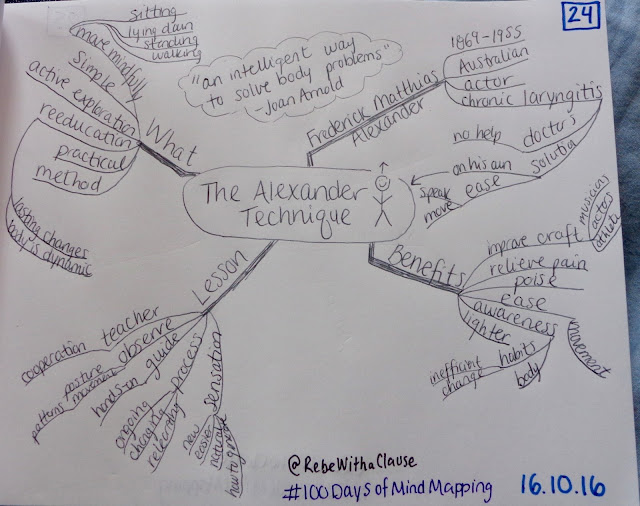 24
"an intelligent way
to solve body problems"
-Joan Arnold
The Alexander
Technique
Frederick Matthias
Alexander
1869-1955
Australian
actor
chronic laryngitis
doctors
no help
solution
on his own
ease
speak
move
Benefits
improve craft
musicians
actors
athletes
relieve pain
poise
ease
movement
awareness
habits
inefficient
change
body
lighter
Lesson
teacher
cooperation
observe
posture
movement
patterns
guide
hands-on
process
ongoing
changing
sensation
new
easier
natural
What
move mindfully
sitting
lying down
standing
walking
simple
active exploration
reeducation
lasting changes
body is dynamic
practical
method
@RebeWithaClause
#100Days of Mind Mapping
16.10.16